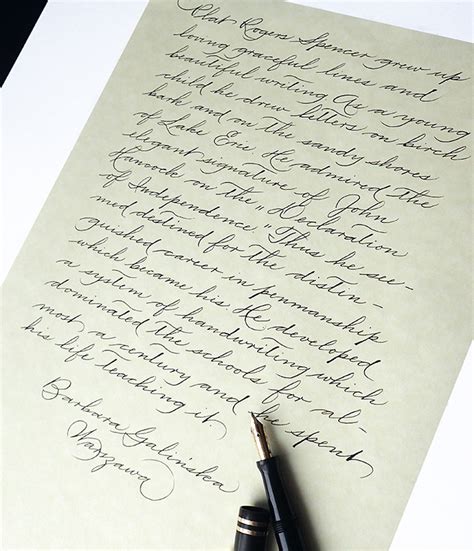 Plat Rogers Spencer grew up
loving graceful lines and
beautiful writing As a young
child he drew letters on birch
bark and on the sandy shores
of Lake Erie. He admired the
elegant signature of John
Hancock on the „Declaration
of Independence." Thus he see-
med distined for the distin-
guished career in penmanship
which became his He developed
a system of handwriting which
dominated the schools for al-
most a century and he spent
his life teaching it
Barbara Galińska
Warszawa